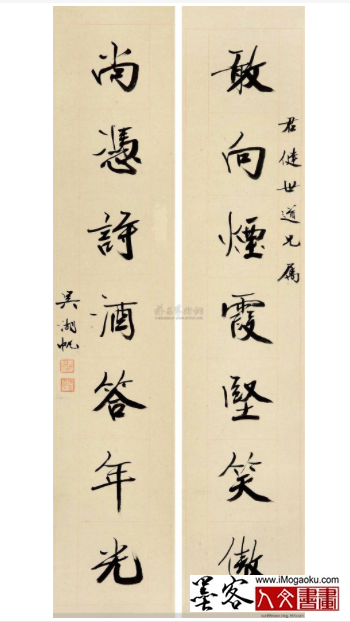 君健世道兄屬
敢向煙霞堅笑傲
尚憑詩酒答年光
吳湖帆
墨客
www.iMogaoku.com
人文書畫